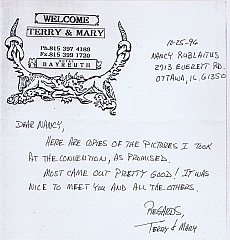 WELCOME
TERRY & MARY
Ph.815 397 4189
Fx.815 399 1720
BAYREUTH
10-25-96
NANCY RUBLAITUS
2913 EVERETT RD.
OTTAWA, IL. 61350
DEAR NANCY,
HERE ARE COPIES OF THE PICTURES I TOOK
AT THE CONVENTION, AS PROMISED.
MOST CAME OUT PRETTY GOOD! IT WAS
NICE TO MEET YOU AND ALL THE OTHERS.
REGARDS,
TERRY & MARY